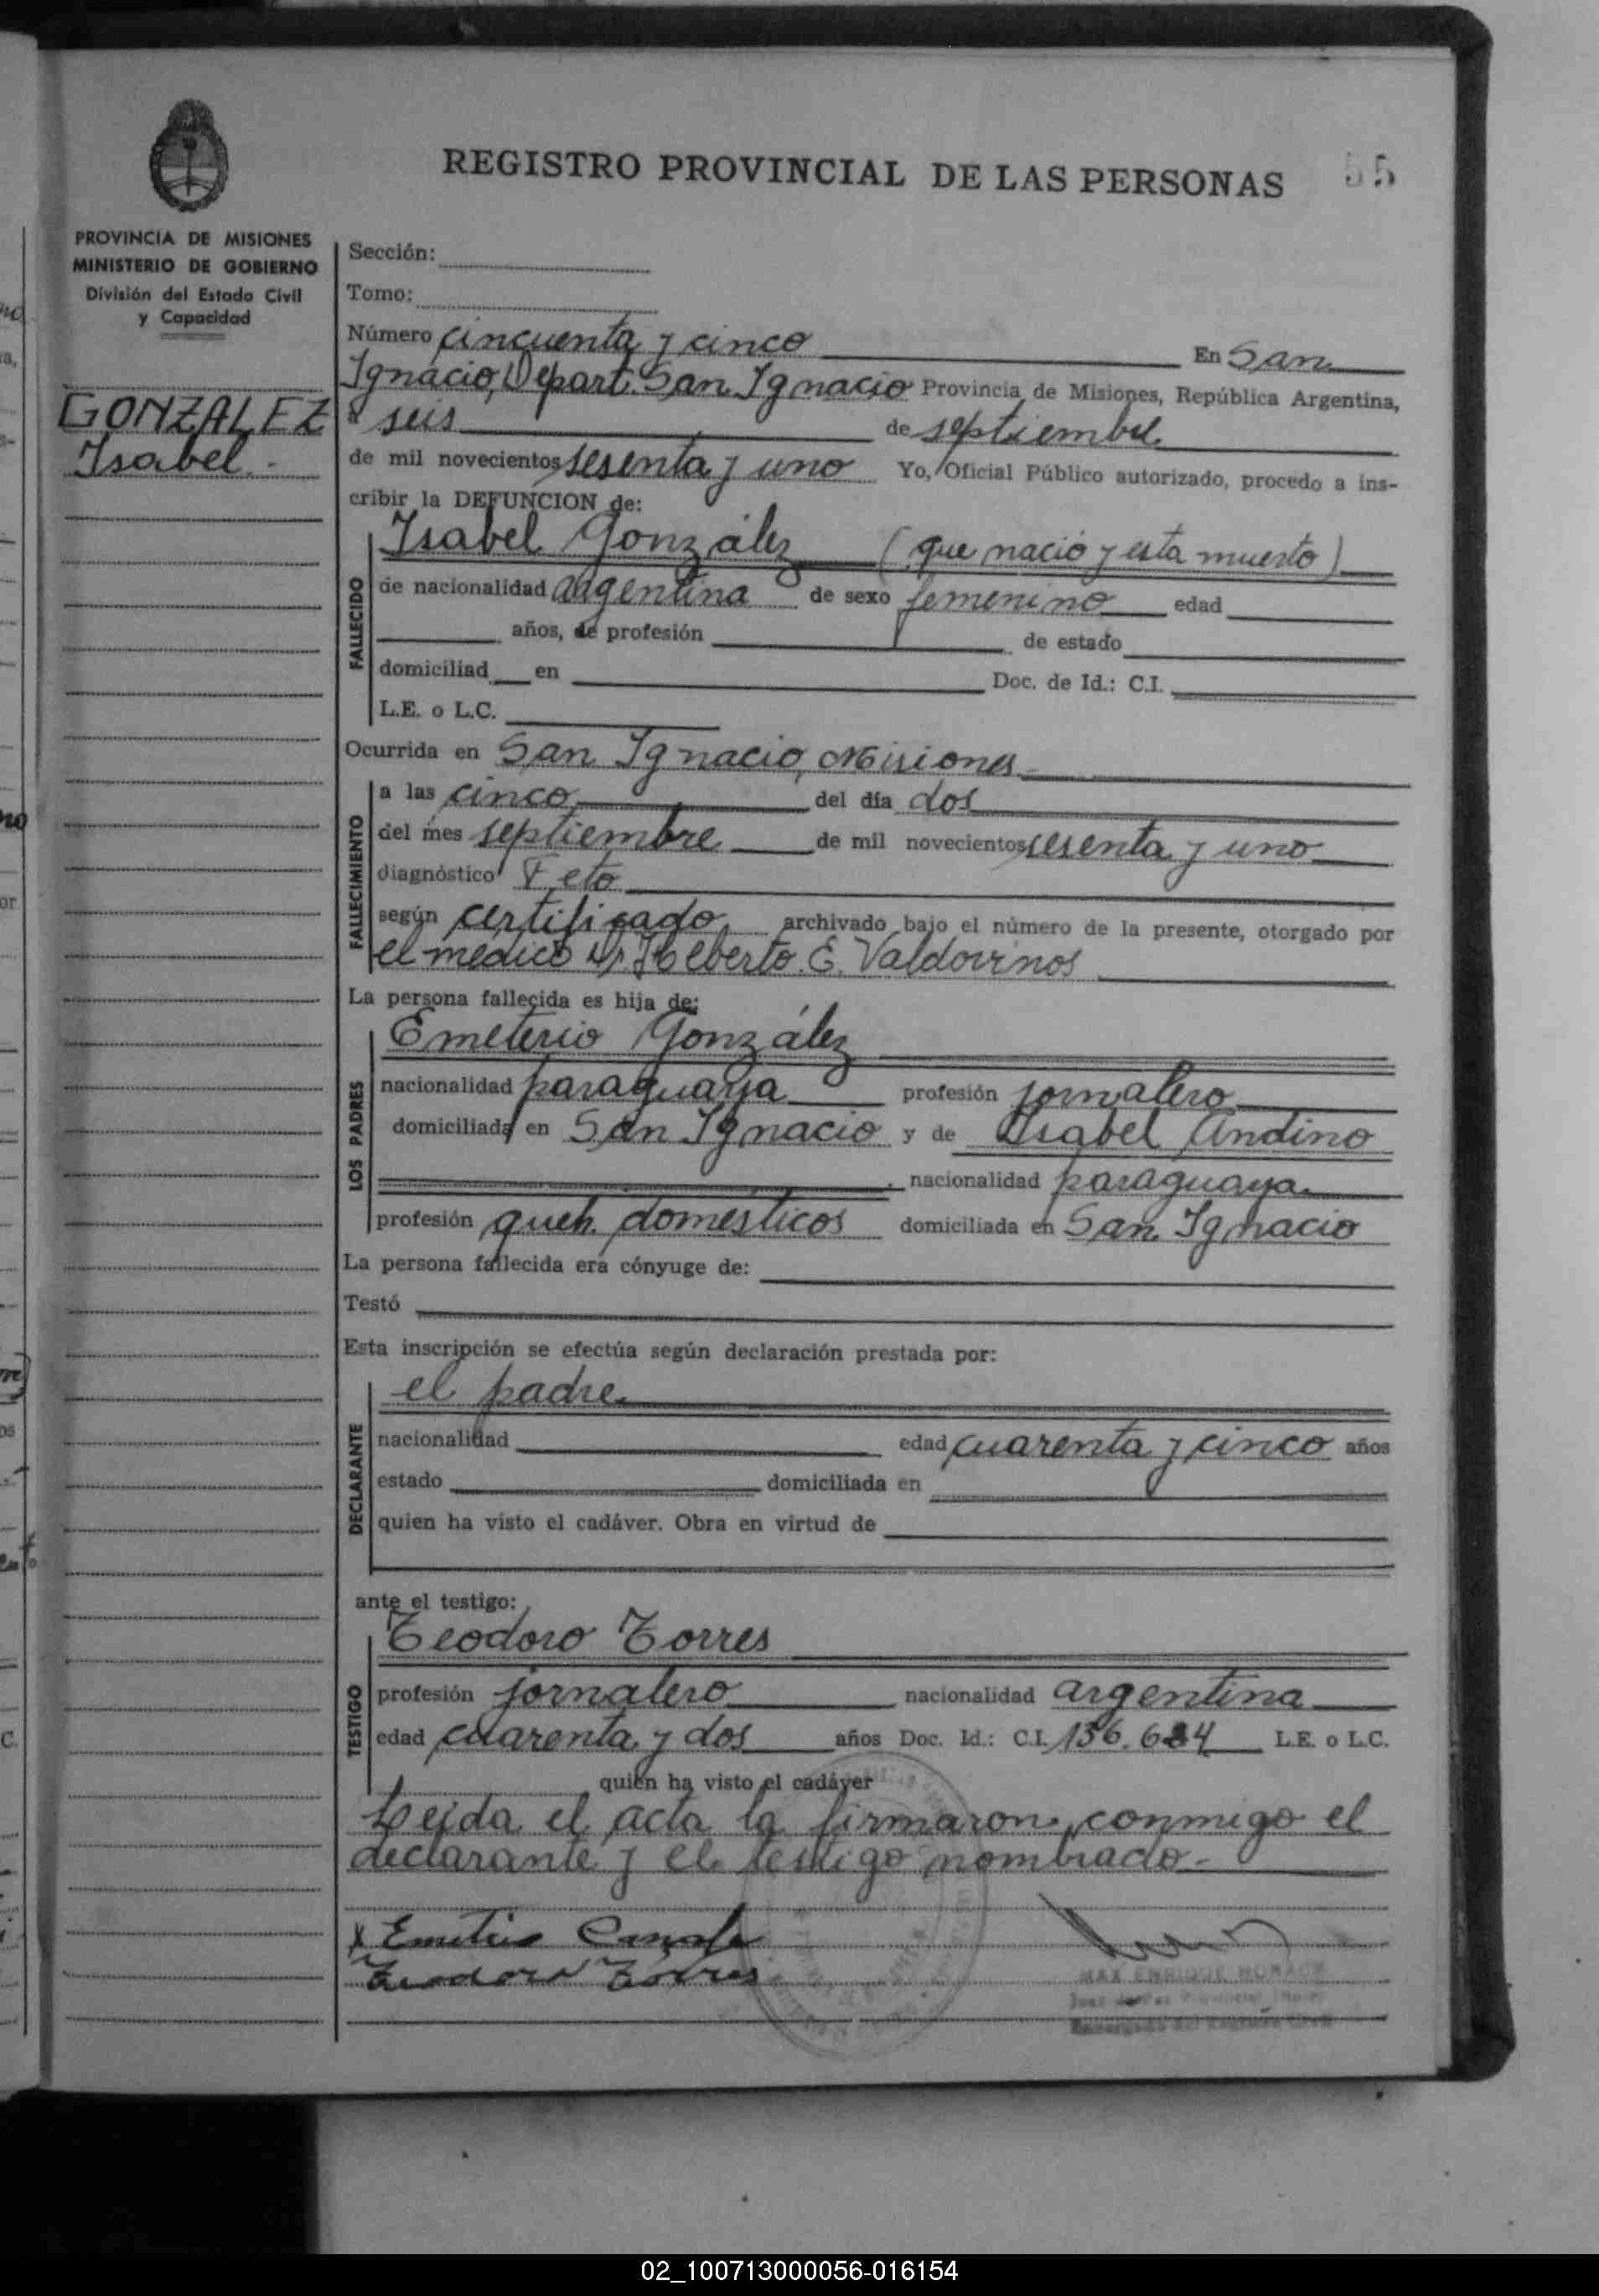 REGISTRO PROVINCIAL DE LAS PERSONAS 55
PROVINCIA DE MISIONES
MINISTERIO DE GOBIERNO
División del Estado Civil
y Capacidad
GONZALEZ
Isabel.-
Sección:
Tomo:
Número cincuenta y cinco En San
Ignacio, Depart. San Ignacio Provincia de Misiones, República Argentina,
a seis de septiembre
de mil novecientos sesenta y uno Yo, Oficial Público autorizado, procedo a ins-
cribir la DEFUNCION de:
FALLECIDO
Isabel González (que nació y esta muerto)
de nacionalidad argentina de sexo femenino edad
años, de profesión de estado
domiciliad en Doc. de Id.: C.I.
L.E. o L.C.
Ocurrida en San Ignacio, Misiones
FALLECIMIENTO
a las cinco del día dos
del mes septiembre de mil novecientos sesenta y uno
diagnóstico Feto
según certificado archivado bajo el número de la presente, otorgado por
el médico Dr. Heberto E. Valdovinos
La persona fallecida es hija de:
LOS PADRES
Emeterio González
nacionalidad paraguaya profesión jornalero
domiciliado en San Ignacio y de Isabel Andino
nacionalidad paraguaya
profesión queh. domésticos domiciliada en San Ignacio
La persona fallecida era cónyuge de:
Testó
Esta inscripción se efectúa según declaración prestada por:
DECLARANTE
el padre
nacionalidad edad cuarenta y cinco años
estado domiciliada en
quien ha visto el cadáver. Obra en virtud de
ante el testigo:
TESTIGO
Teodoro Torres
profesión jornalero nacionalidad argentina
edad cuarenta y dos años Doc. Id.: C.I. L.E. o L.C.
quien ha visto el cadáver
Leída el acta la firmaron conmigo el
declarante y el testigo nombrado.-
x Emeterio
Teodoro Torres
MAX ENRIQUE
02_100713000056-016154